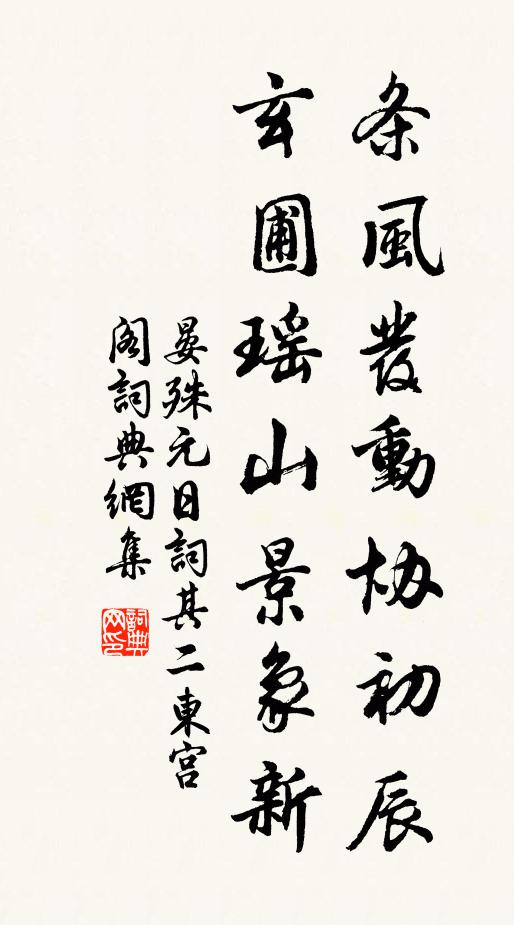 条風發動協初辰
玄圃瑤山景象新
晏殊元日詞其二東宮
閣詞典網集
詞典网印